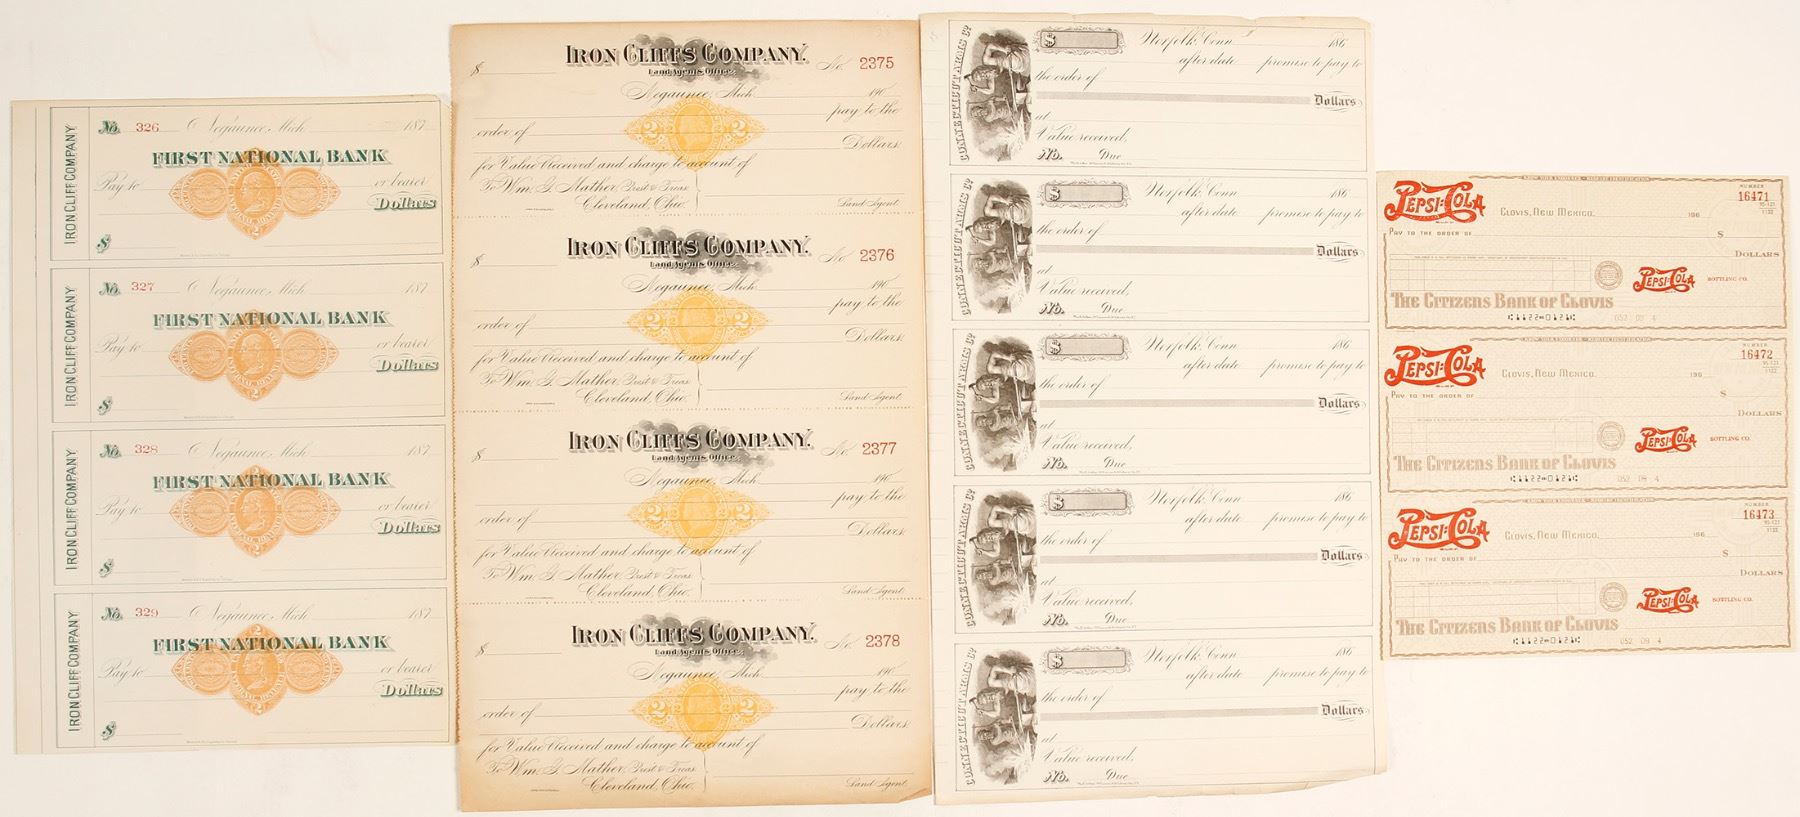 IRON CLIFF COMPANY
No. 326 Negaunee, Mich. 187
FIRST NATIONAL BANK
Pay to or bearer
Dollars
$
IRON CLIFF COMPANY
No. 327 Negaunee, Mich. 187
FIRST NATIONAL BANK
Pay to or bearer
Dollars
$
IRON CLIFF COMPANY
No. 328 Negaunee, Mich. 187
FIRST NATIONAL BANK
Pay to or bearer
Dollars
$
IRON CLIFF COMPANY
No. 329 Negaunee, Mich. 187
FIRST NATIONAL BANK
Pay to or bearer
Dollars
$
IRON CLIFFS COMPANY.
$ Land Agents Office. No. 2375
Negaunee, Mich. 190
pay to the
order of Dollars.
2 2
for Value Received and charge to account of
To Wm. G. Mather, Prest & Treas.
Cleveland, Ohio. Land Agent.
IRON CLIFFS COMPANY.
$ Land Agents Office. No. 2376
Negaunee, Mich. 190
pay to the
order of Dollars.
2 2
for Value Received and charge to account of
To Wm. G. Mather, Prest & Treas.
Cleveland, Ohio. Land Agent.
IRON CLIFFS COMPANY.
$ Land Agents Office. No. 2377
Negaunee, Mich. 190
pay to the
order of Dollars.
2 2
for Value Received and charge to account of
To Wm. G. Mather, Prest & Treas.
Cleveland, Ohio. Land Agent.
IRON CLIFFS COMPANY.
$ Land Agents Office. No. 2378
Negaunee, Mich. 190
pay to the
order of Dollars.
2 2
for Value Received and charge to account of
To Wm. G. Mather, Prest & Treas.
Cleveland, Ohio. Land Agent.
CONNECTICUT ARMS Co.
$ Norfolk, Conn. 186
after date promise to pay to
the order of
Dollars
at
Value received,
No. Due
CONNECTICUT ARMS Co.
$ Norfolk, Conn. 186
after date promise to pay to
the order of
Dollars
at
Value received,
No. Due
CONNECTICUT ARMS Co.
$ Norfolk, Conn. 186
after date promise to pay to
the order of
Dollars
at
Value received,
No. Due
CONNECTICUT ARMS Co.
$ Norfolk, Conn. 186
after date promise to pay to
the order of
Dollars
at
Value received,
No. Due
CONNECTICUT ARMS Co.
$ Norfolk, Conn. 186
after date promise to pay to
the order of
Dollars
at
Value received,
No. Due
KNOW YOUR ENDORSER - REQUIRE IDENTIFICATION
PEPSI:COLA
NUMBER
16471
95-121
1122
CLOVIS, NEW MEXICO, 196
PAY TO THE ORDER OF $
DOLLARS
PEPSI:COLA BOTTLING CO.
THE CITIZENS BANK OF CLOVIS
1122 0121 052 09 4
KNOW YOUR ENDORSER - REQUIRE IDENTIFICATION
PEPSI:COLA
NUMBER
16472
95-121
1122
CLOVIS, NEW MEXICO, 196
PAY TO THE ORDER OF $
DOLLARS
PEPSI:COLA BOTTLING CO.
THE CITIZENS BANK OF CLOVIS
1122 0121 052 09 4
KNOW YOUR ENDORSER - REQUIRE IDENTIFICATION
PEPSI:COLA
NUMBER
16473
95-121
1122
CLOVIS, NEW MEXICO, 196
PAY TO THE ORDER OF $
DOLLARS
PEPSI:COLA BOTTLING CO.
THE CITIZENS BANK OF CLOVIS
1122 0121 052 09 4